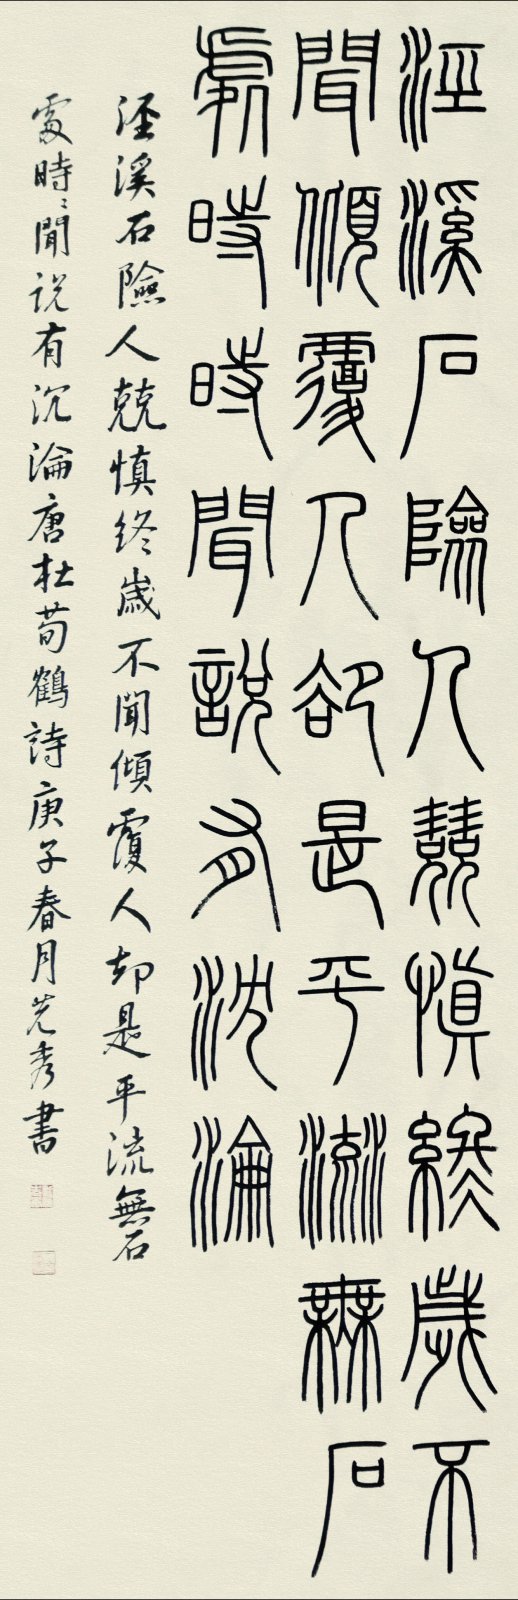 涇溪石險人兢慎終歲不
聞傾覆人卻是平流無石
處時時聞說有沈淪
涇溪石險人兢慎終歲不聞傾覆人却是平流無石
處時〻聞説有沉淪唐杜荀鶴詩庚子春月光秀書